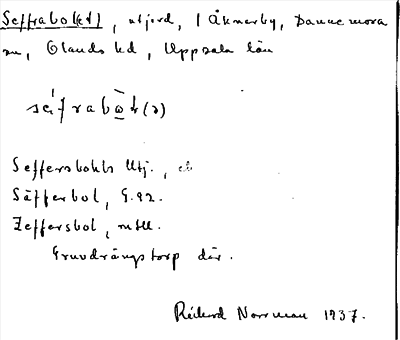 Seffrabo(et), utjord, 1 Åkmerby, Dannemora
sn, Olands hd, Uppsala län
Seffersbohls Utj.,
Säfferbol, G.92.
Zeffersbol, mtll.
Gruvdrängstorp där.
Rickard Norrman 1937.